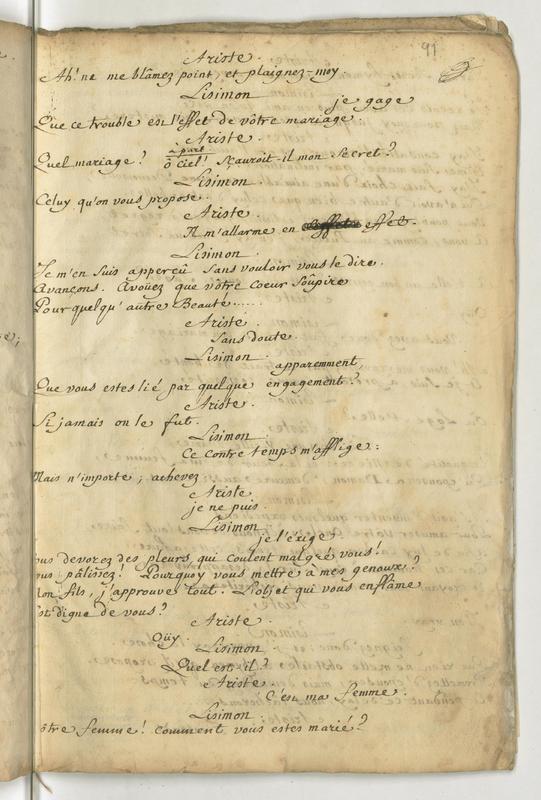 91
Ariste.
Ah! ne me blâmez point, et plaignez-moy.
Lisimon
je gage
Que ce trouble est l'effet de vôtre mariage.
Ariste.
à part
Quel mariage? ô ciel! Sçauroit-il mon Secret?
Lisimon.
Celuy qu'on vous propose.
Ariste.
Il m'allarme en effet.
Lisimon.
Je m'en suis apperçû sans vouloir vous le dire.
Avançons. Avoüez que vôtre coeur soûpire
Pour quelqu'autre Beauté.....
Ariste.
Sans doute.
Lisimon.
apparemment,
Que vous estes lié par quelque engagement?
Ariste.
Si jamais on le fut.
Lisimon.
Ce contre temps m'afflige:
Mais n'importe; achevez
Ariste
je ne puis.
Lisimon
je l'éxige
ous devorez des pleurs, qui coulent malgré vous!
ous pâlissez! Pourquoy vous mettre à mes genoux?
on fils, j'approuve tout. L'objet qui vous enflâme
st digne de vous?
Ariste.
Oüy.
Lisimon.
Quel est-il?
Ariste.
C'est ma femme.
Lisimon.
ôtre femme! Comment, vous estes marié?